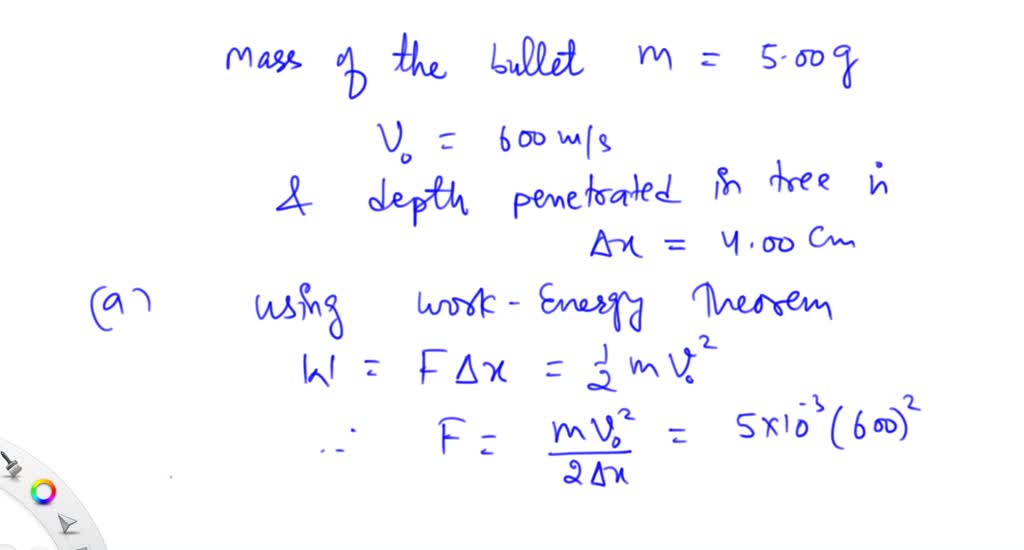 mass of the bullet m = 5.00g
V₀ = 600 m/s
& depth penetrated in tree is
Δx = 4.00 cm
(a) using work - Energy Theorem
W = FΔx = 1/2 mV₀²
∴ F = mV₀²/2Δx = 5×10⁻³(600)²